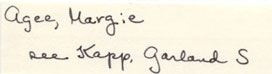 Agee, Margie
see Kapp, Garland S